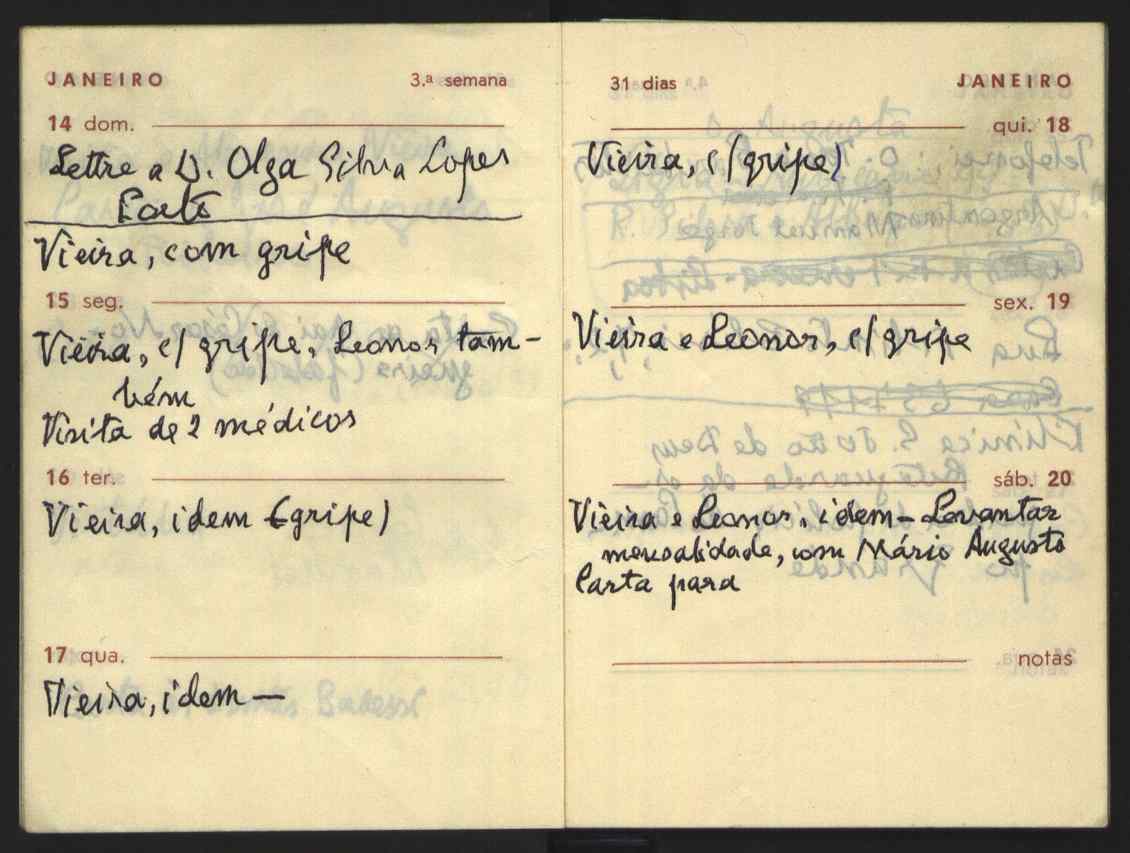 JANEIRO 3.ª semana
14 dom.
Lettre a D. Olga Silva Lopes
Porto
Vieira, com gripe
15 seg.
Vieira, c/ gripe, Leonor tam-
bém
Visita de 2 médicos
16 ter.
Vieira, idem (gripe)
17 qua.
Vieira, idem —
31 dias JANEIRO
qui. 18
Vieira, c/(gripe)
sex. 19
Vieira e Leonor, c/ gripe
sáb. 20
Vieira e Leonor, idem – Levantar
mensalidade, com Mário Augusto
Carta para
notas